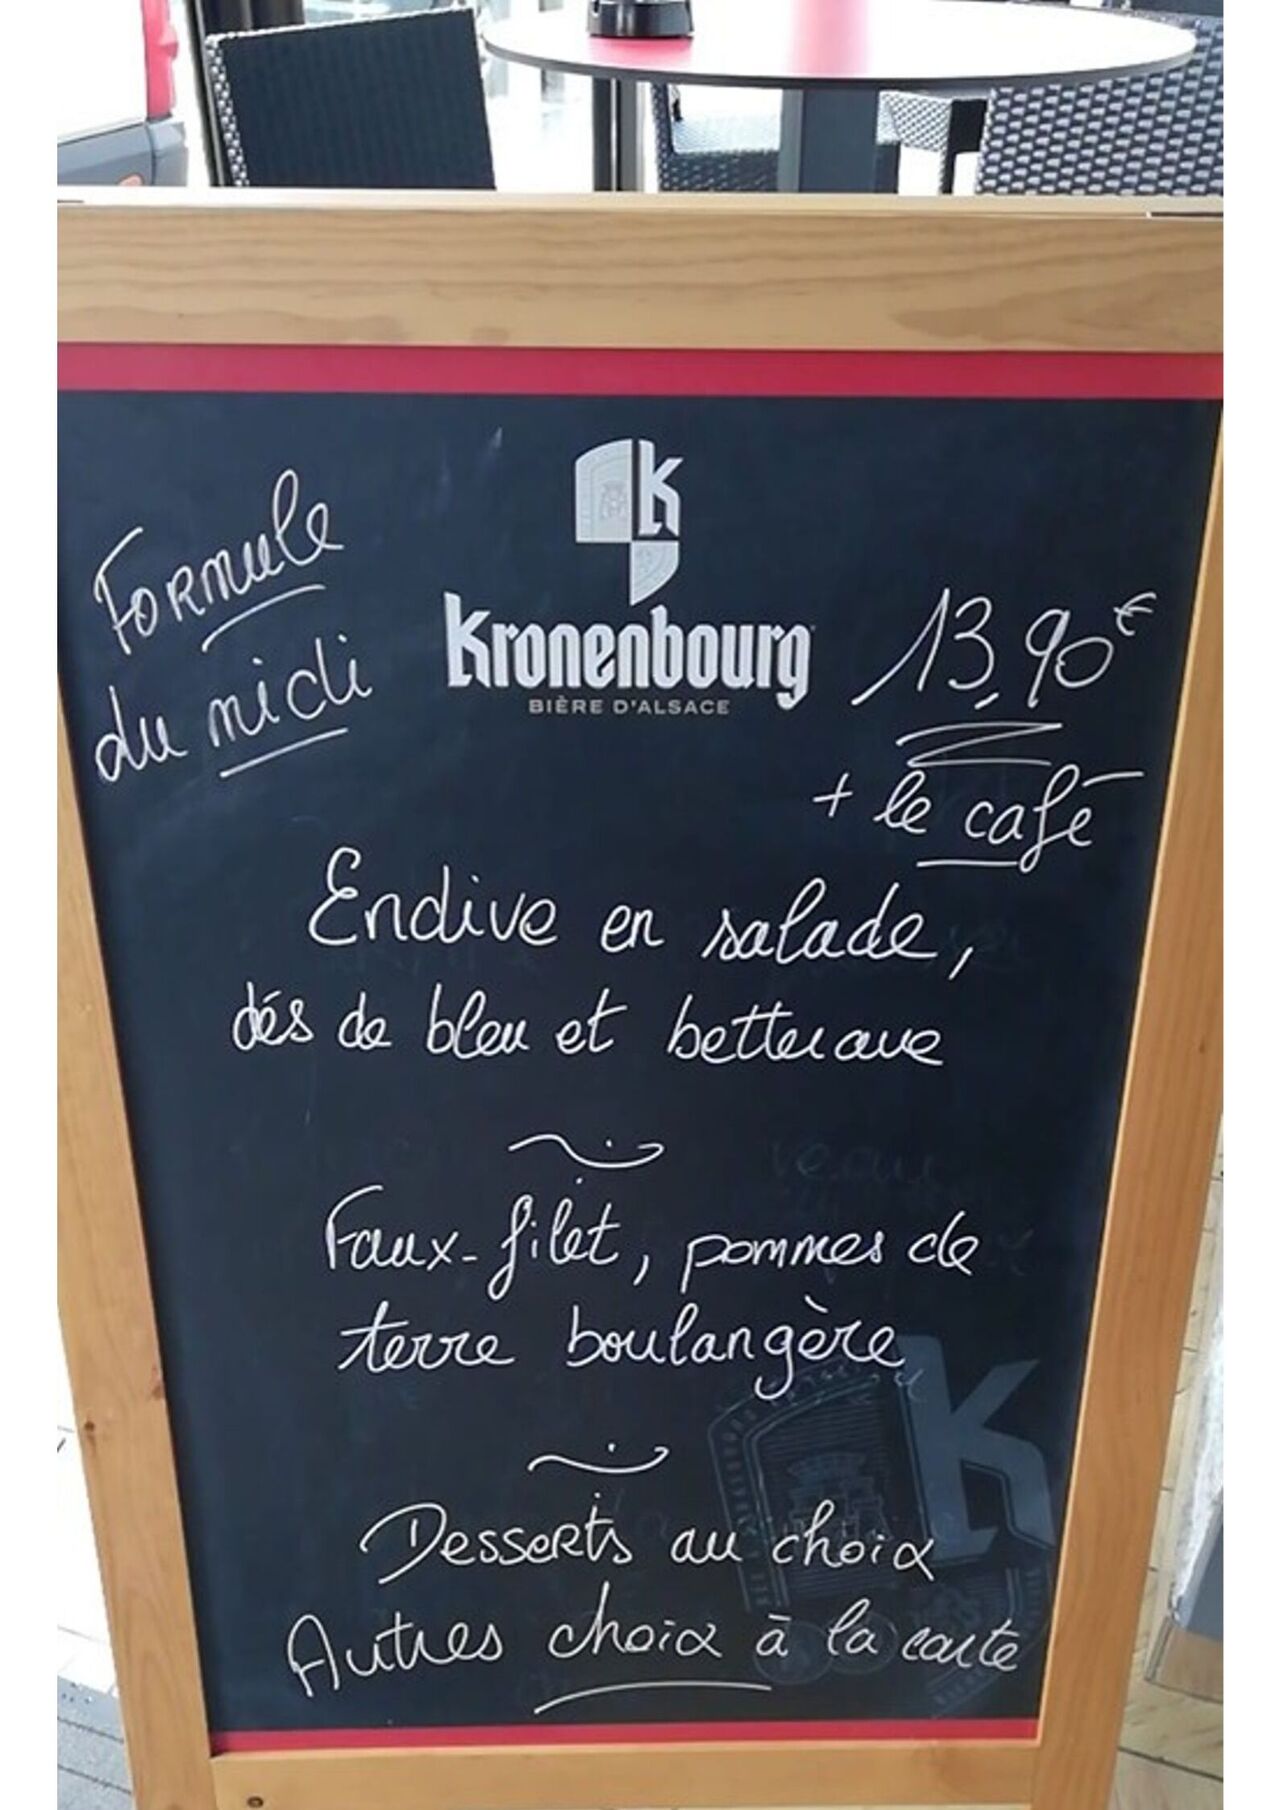 Formule
du midi
K
Kronenbourg
BIÈRE D'ALSACE
13,90€
+ le café
Endive en salade,
dés de bleu et betterave
Faux-filet, pommes de
terre boulangère
Desserts au choix
Autres choix à la carte
K